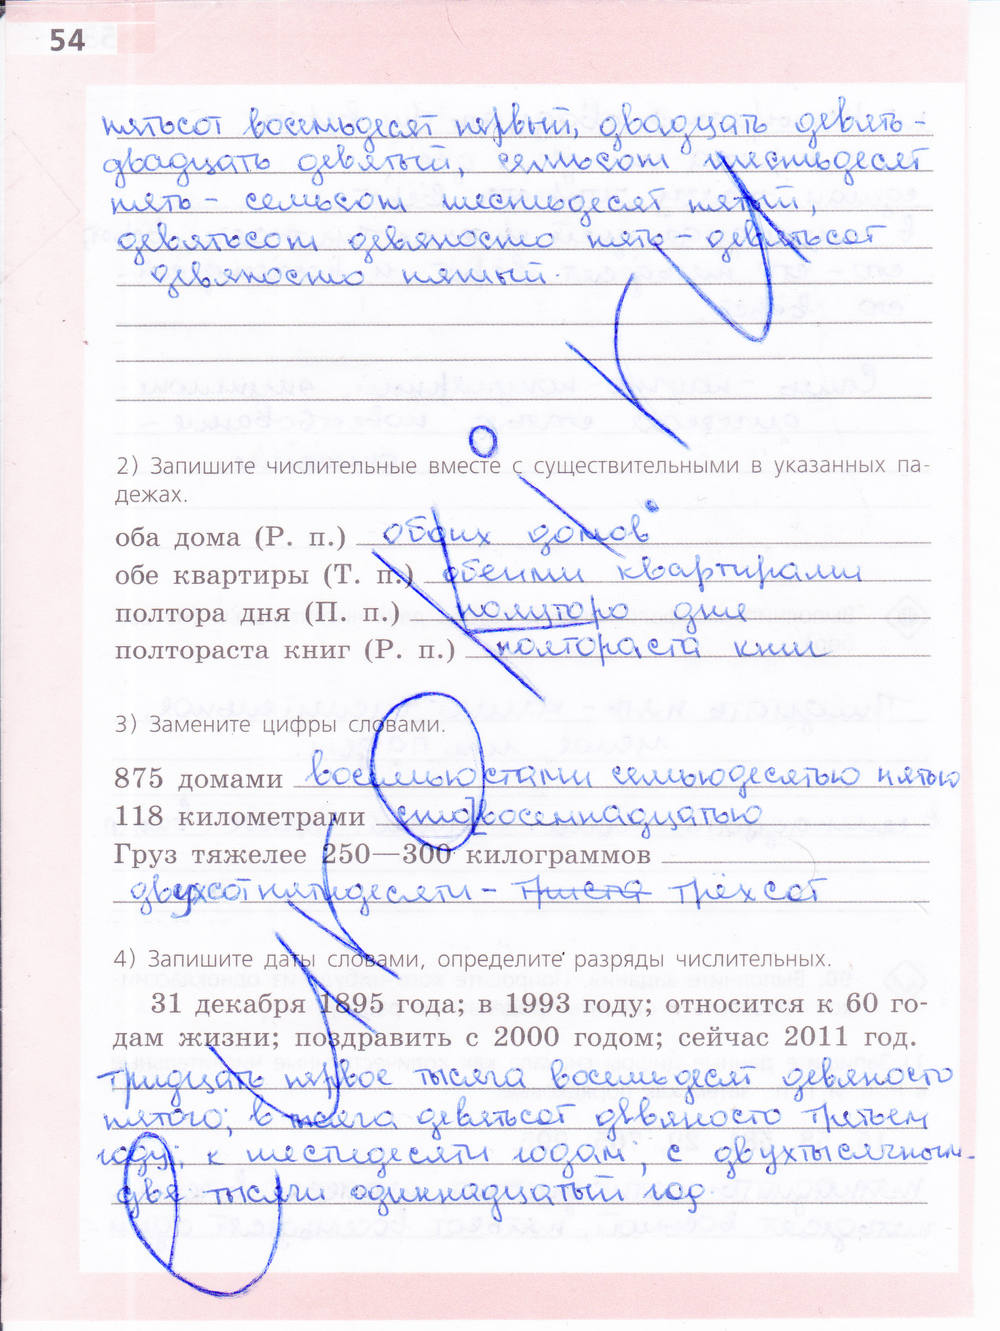 54
пятьсот восемьдесят первый, двадцать девять -
двадцать девятый, семьсот шестьдесят
пять - семьсот шестьдесят пятый,
девятьсот девяносто пять девятьсот
девяносто пятый.
2) Запишите числительные вместе с существительными в указанных па-
дежах.
оба дома (Р. п.) обоих домов
обе квартиры (Т. п.) обеими квартирами
полтора дня (П. п.) полуторо дня
полтораста книг (Р. п.) полтораста книг
3) Замените цифры словами.
875 домами восемьюстами семьюдесятью пятью
118 километрами сто восемнадцатью
Груз тяжелее 250—300 килограммов
двухсот пятидесяти - триста трёхсот
4) Запишите даты словами, определите разряды числительных.
31 декабря 1895 года; в 1993 году; относится к 60 го-
дам жизни; поздравить с 2000 годом; сейчас 2011 год.
тридцать первое тысяча восемьдесят девяносто
пятого; в тысяча девятьсот девяносто третьем
году; к шестидесяти годам, с двухтысячным-
две тысячи одиннадцатый год